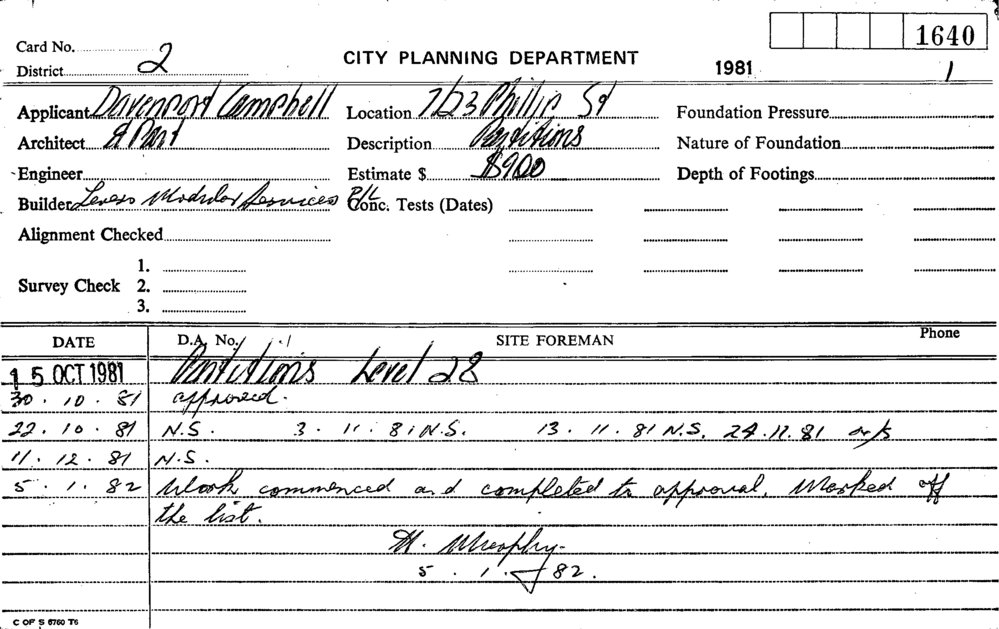 1640
Card No. 2
District
CITY PLANNING DEPARTMENT
1981 1
Applicant Davenport Campbell Location 7/23 Phillip St Foundation Pressure
Architect & Part Description Partitions Nature of Foundation
Engineer Estimate $ $900 Depth of Footings
Builder Modular Services P/L Conc. Tests (Dates)
Alignment Checked
1.
Survey Check 2.
3.
DATE D.A. No. SITE FOREMAN Phone
15 OCT 1981 Partitions Level 28
30 . 10 . 81 approved.
22 . 10 . 81 N.S. 3 . 11 . 81 N.S. 13 . 11 . 81 N.S. 24 . 11 . 81 N/S
11 . 12 . 81 N.S.
5 . 1 . 82 Work commenced and completed to approval. Marked off
the list.
M. Murphy
5 . 1 . 82.
C OF S 6760 T6